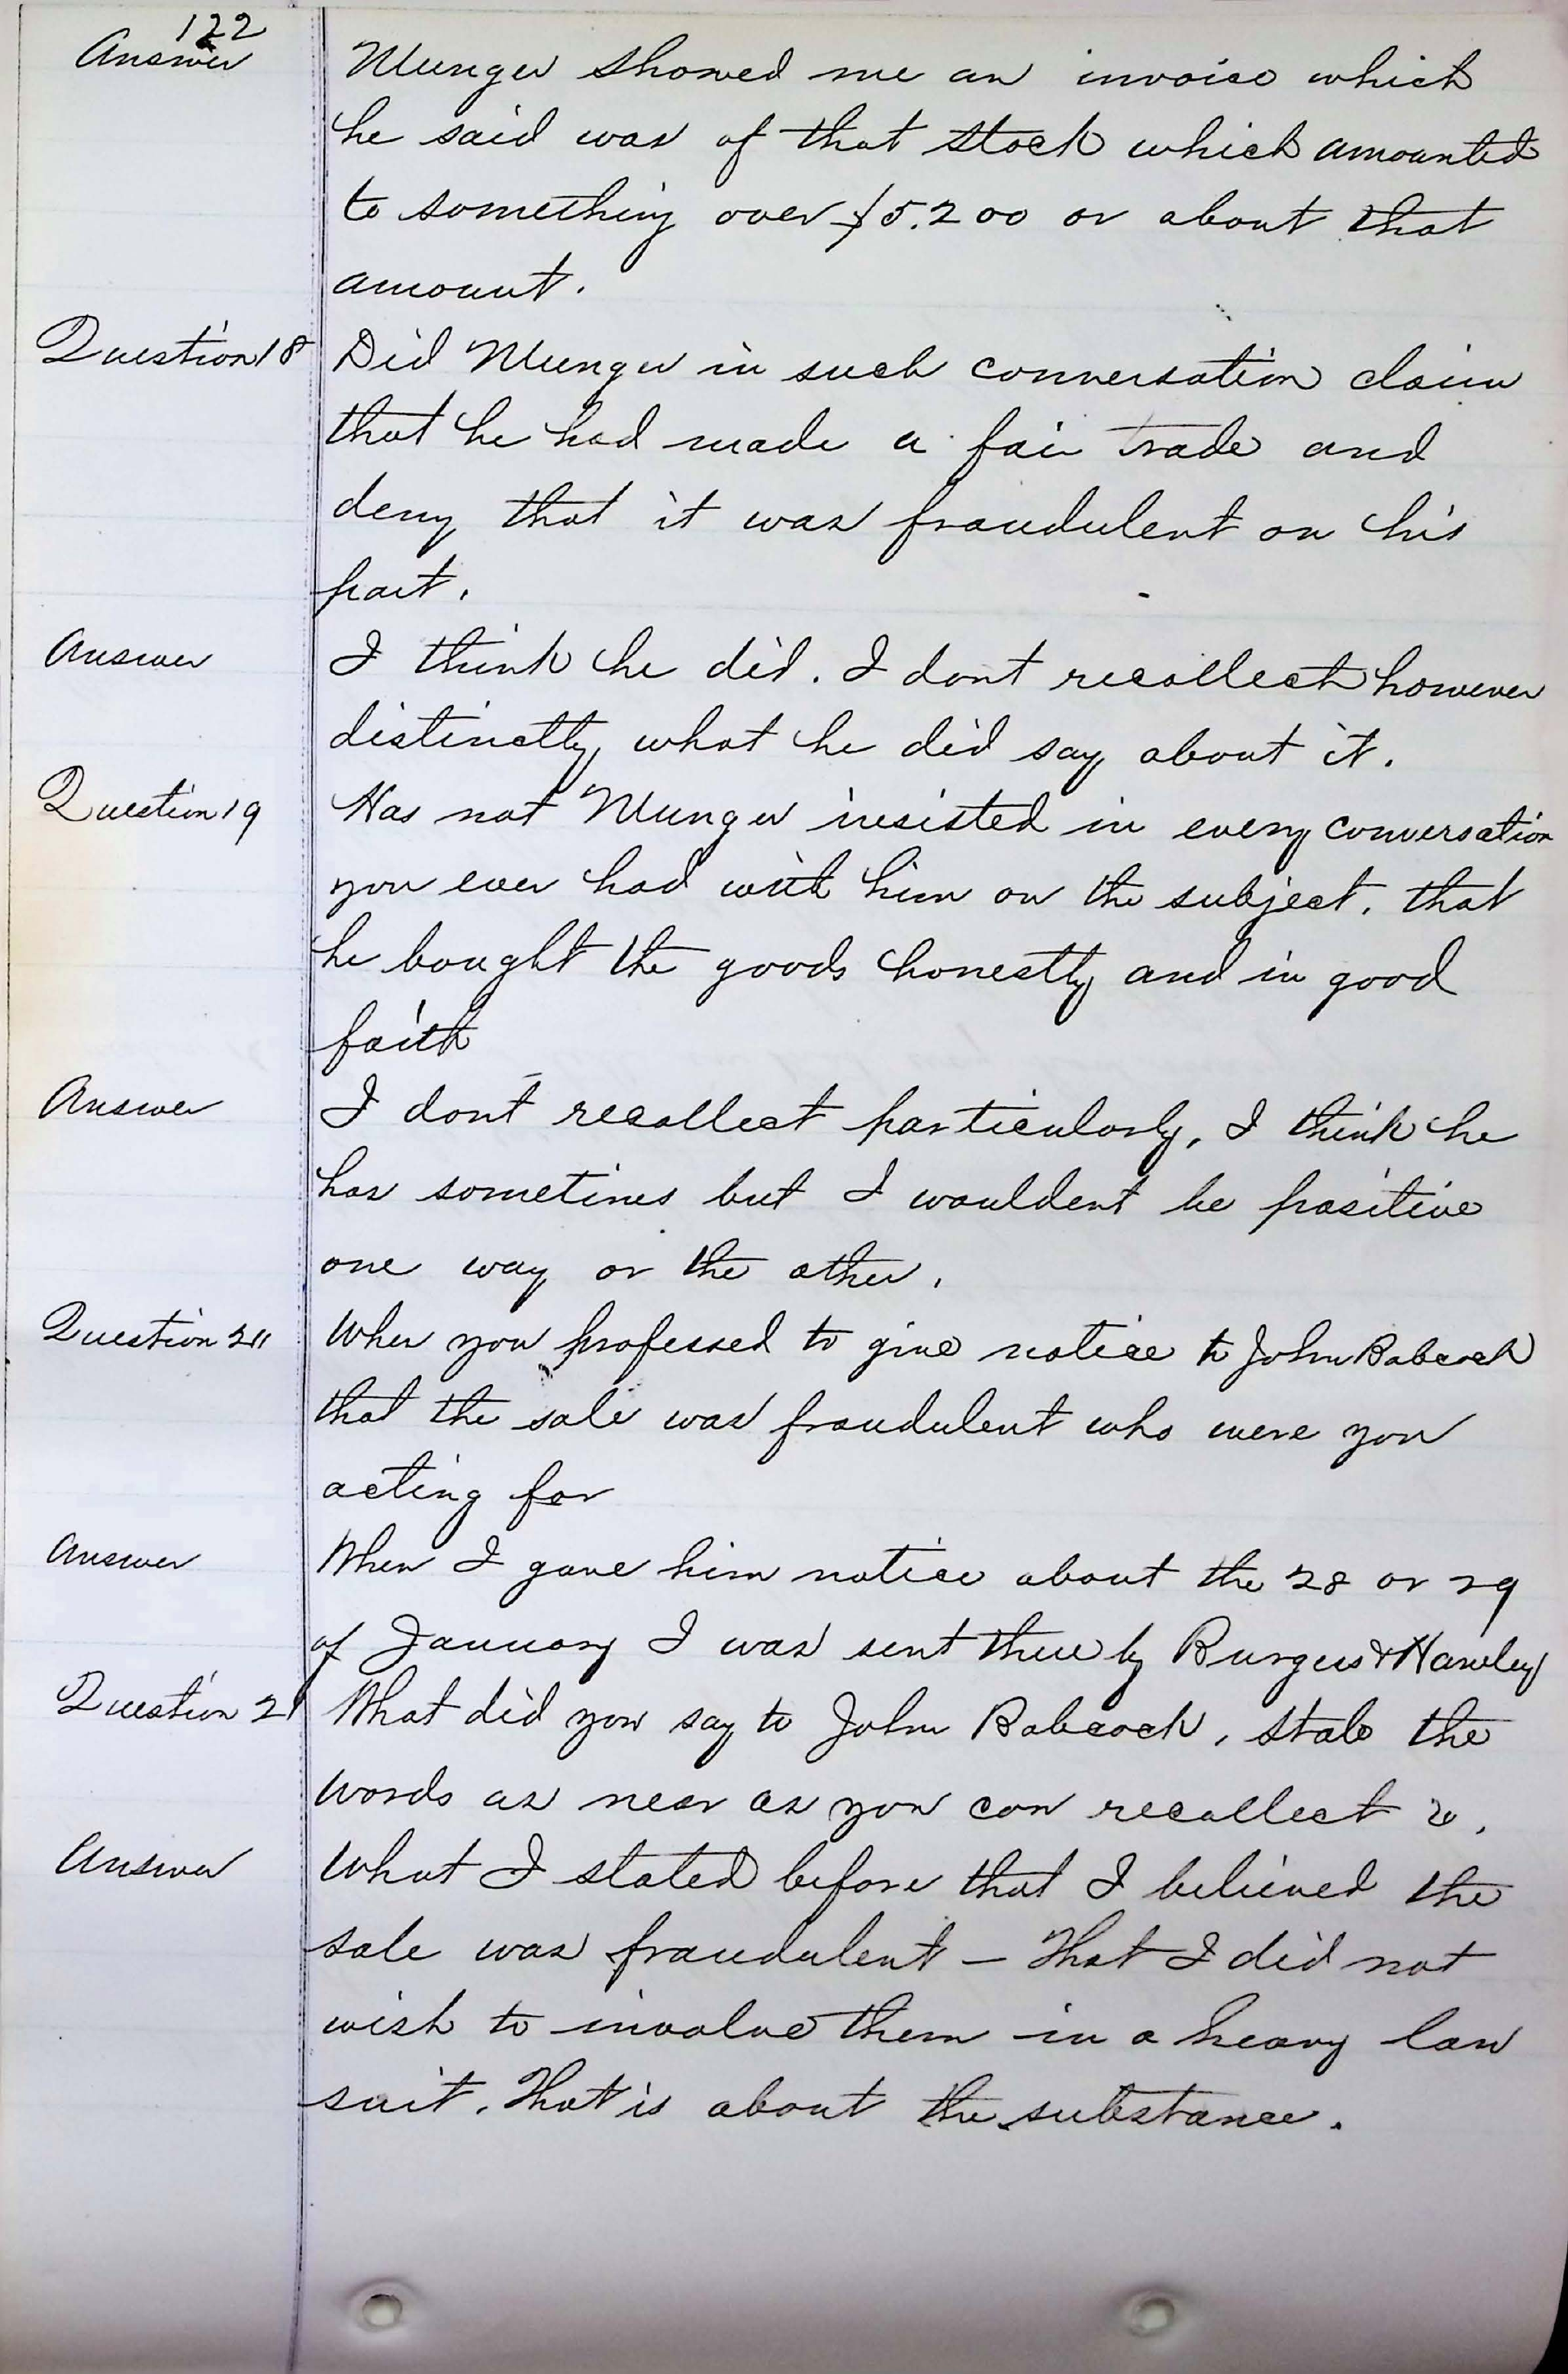 122
Answer Munger showed me an invoice which
he said was of that stock which amounted
to something over $5.200 or about that
amount.
Question 18 Did Munger in such conversation claim
that he had made a fair trade and
deny that it was fraudulent on his
part.
Answer I think he did. I dont recollect however
distinctly what he did say about it.
Question 19 Has not Munger insisted in every conversation
you ever had with him on the subject, that
he bought the goods honestly and in good
faith
Answer I dont recollect particularly, I think he
has sometimes but I wouldent be positive
one way or the other.
Question 20 When you professed to give notice to John Babcock
that the sale was fraudulent who were you
acting for
Answer When I gave him notice about the 28 or 29
of January I was sent there by Burgess & Hawley
Question 21 What did you say to John Babcock, state the
words as near as you can recollect
Answer What I stated before that I believed the
sale was fraudulent – That I did not
wish to involve them in a heavy law
suit. That is about the substance.